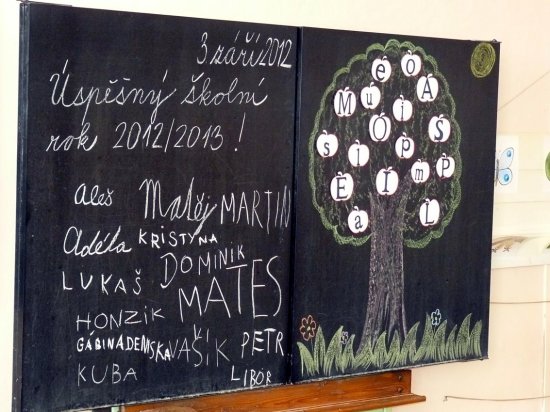 3 září 2012
Úspěšný školní
rok 2012/2013!
Aleš Matěj MARTIN
Adéla KRISTYNA
LUKAŠ DOMINIK
HONZIK MATES
GÁBINA DEMSKA VAŠIK PETR
KUBA LIBOR
e O A
M u i S
s i O p m P
E Í L
a